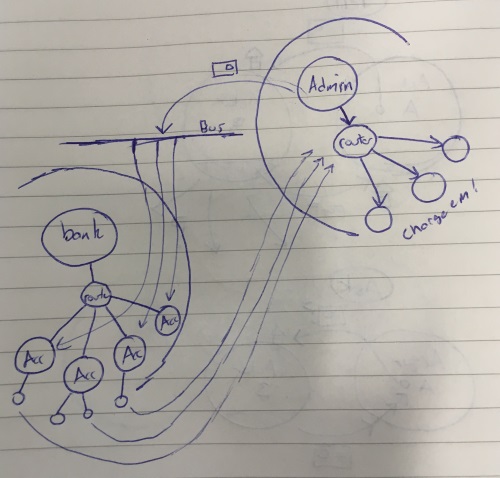 Admin
Bus
router
charge em!
bank
route
Acc
Acc
Acc
Acc